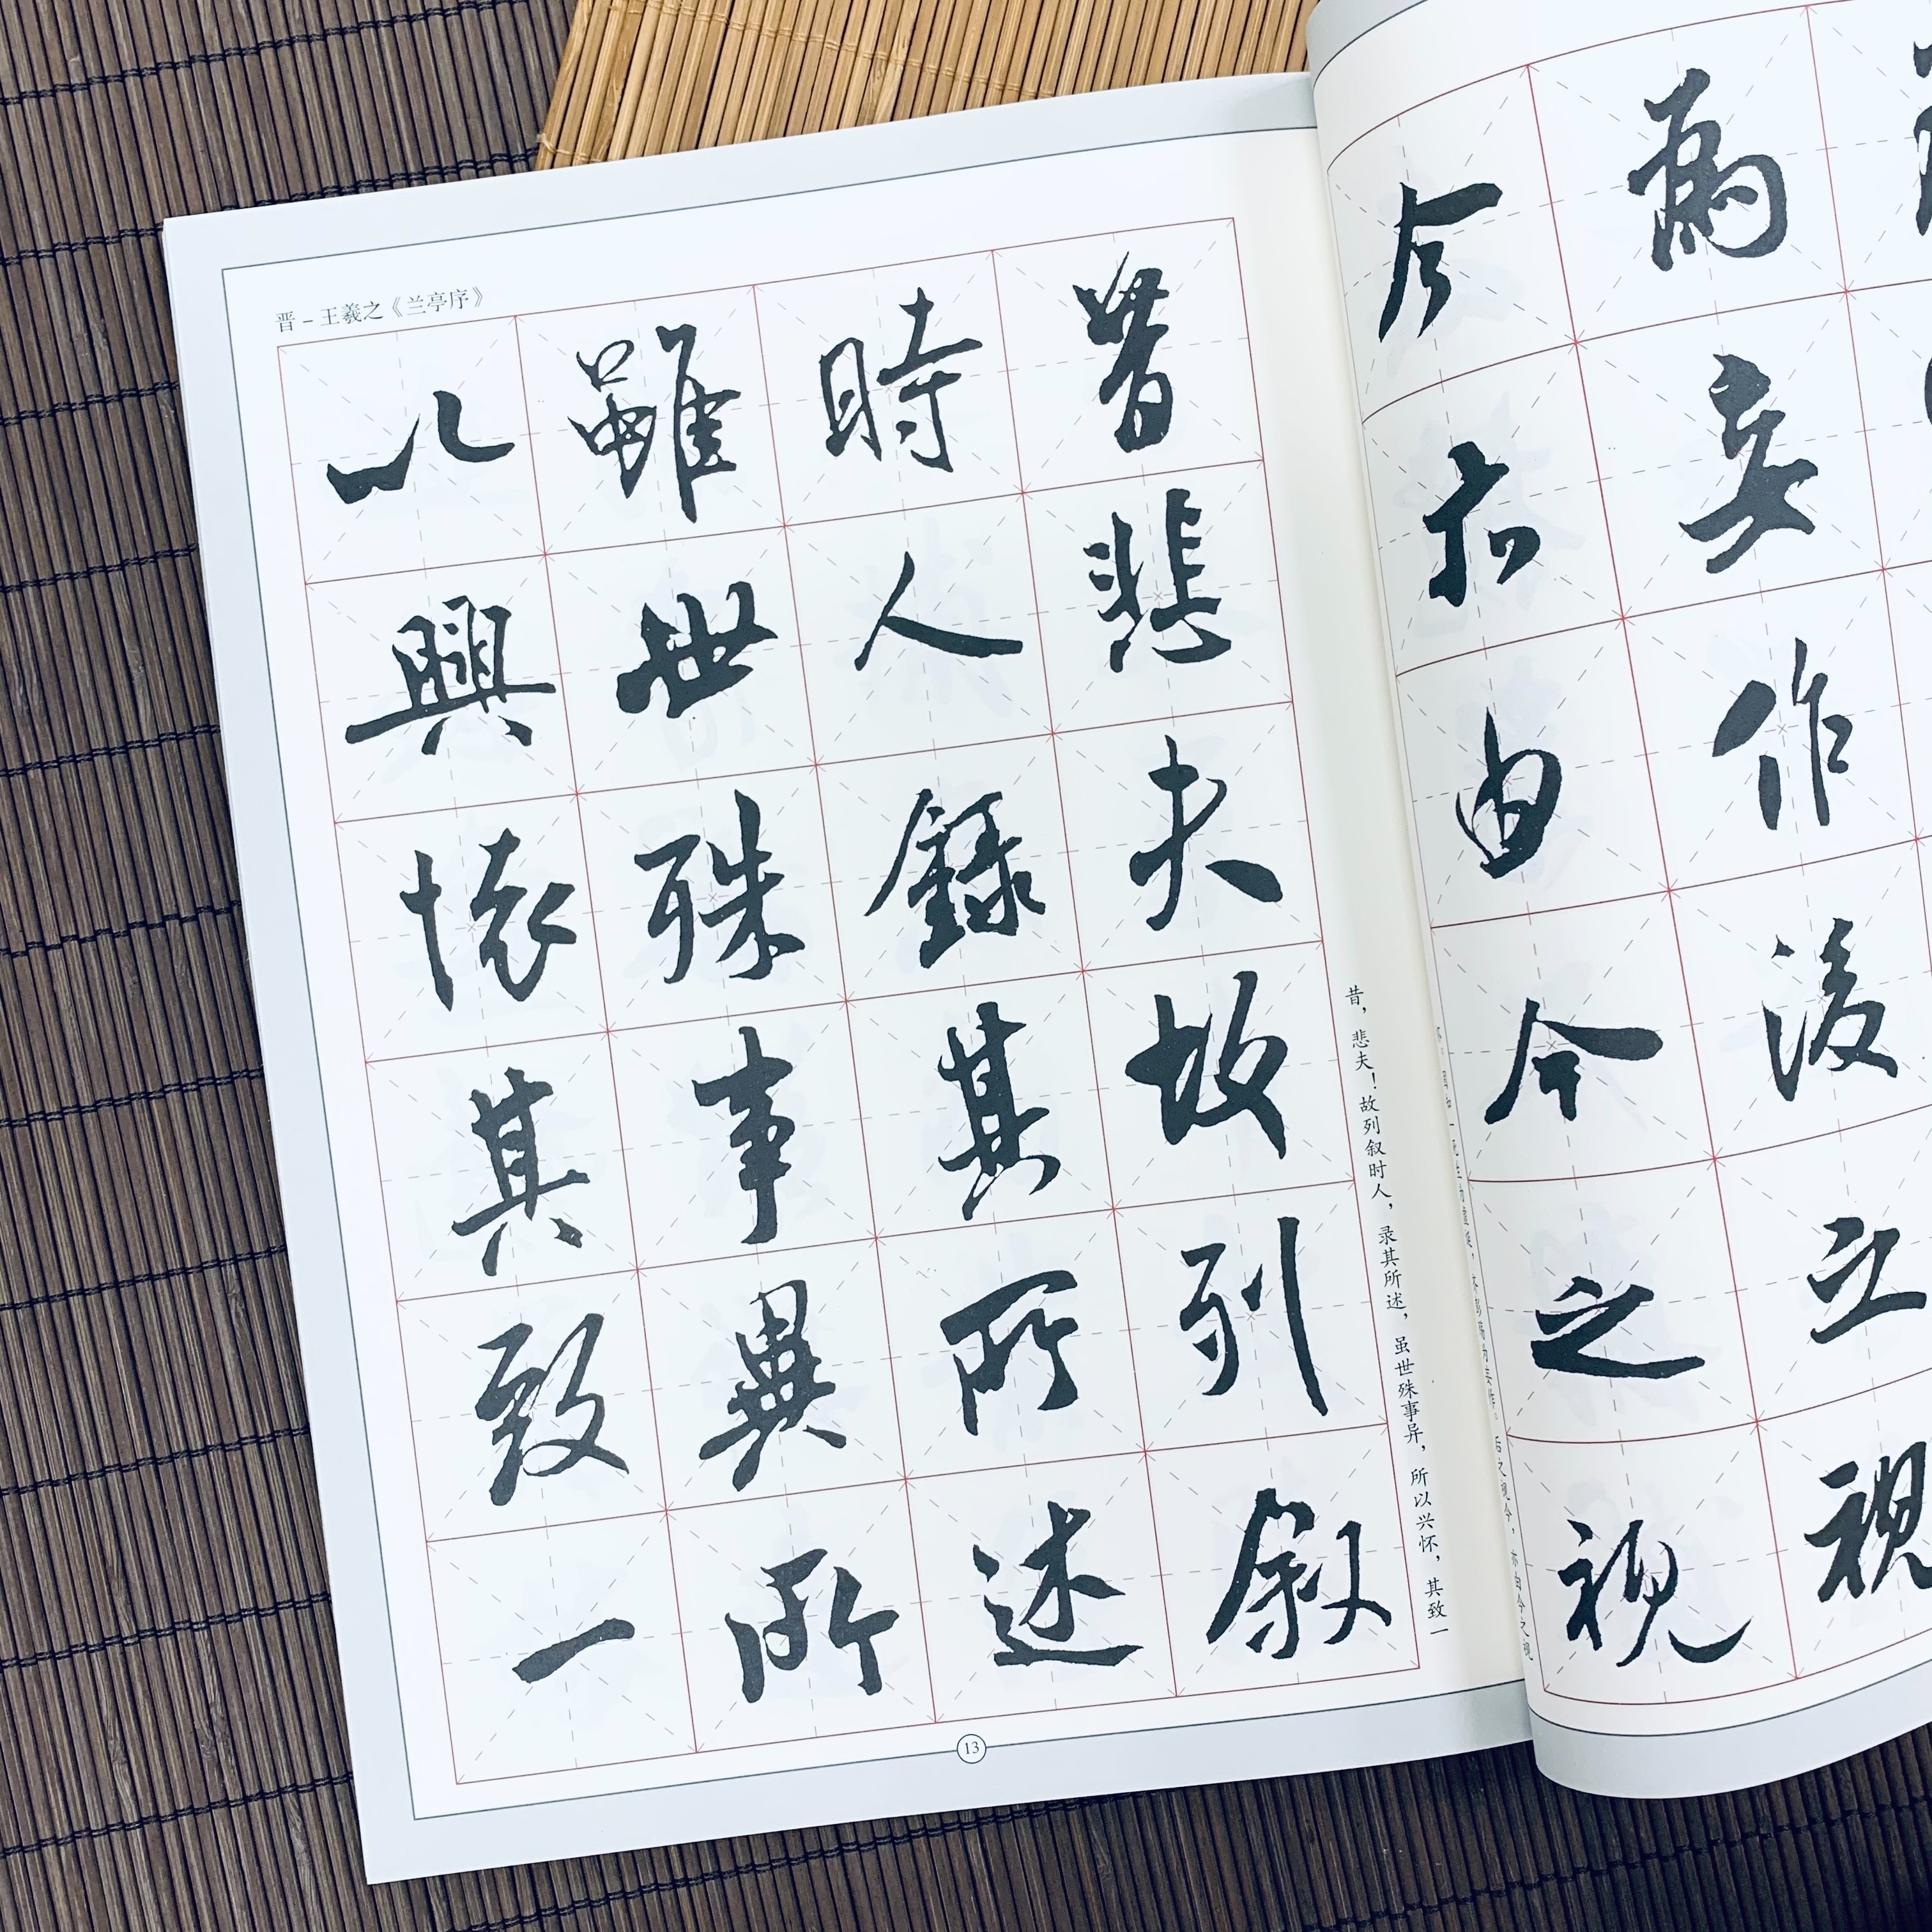 為妄作後之視
今亦由今之視
后之视今，亦由今之视
晋－王羲之《兰亭序》
昔悲夫故列叙
時人錄其所述
雖世殊事異所
以興懷其致一
昔，悲夫！故列叙时人，录其所述，虽世殊事异，所以兴怀，其致一
13